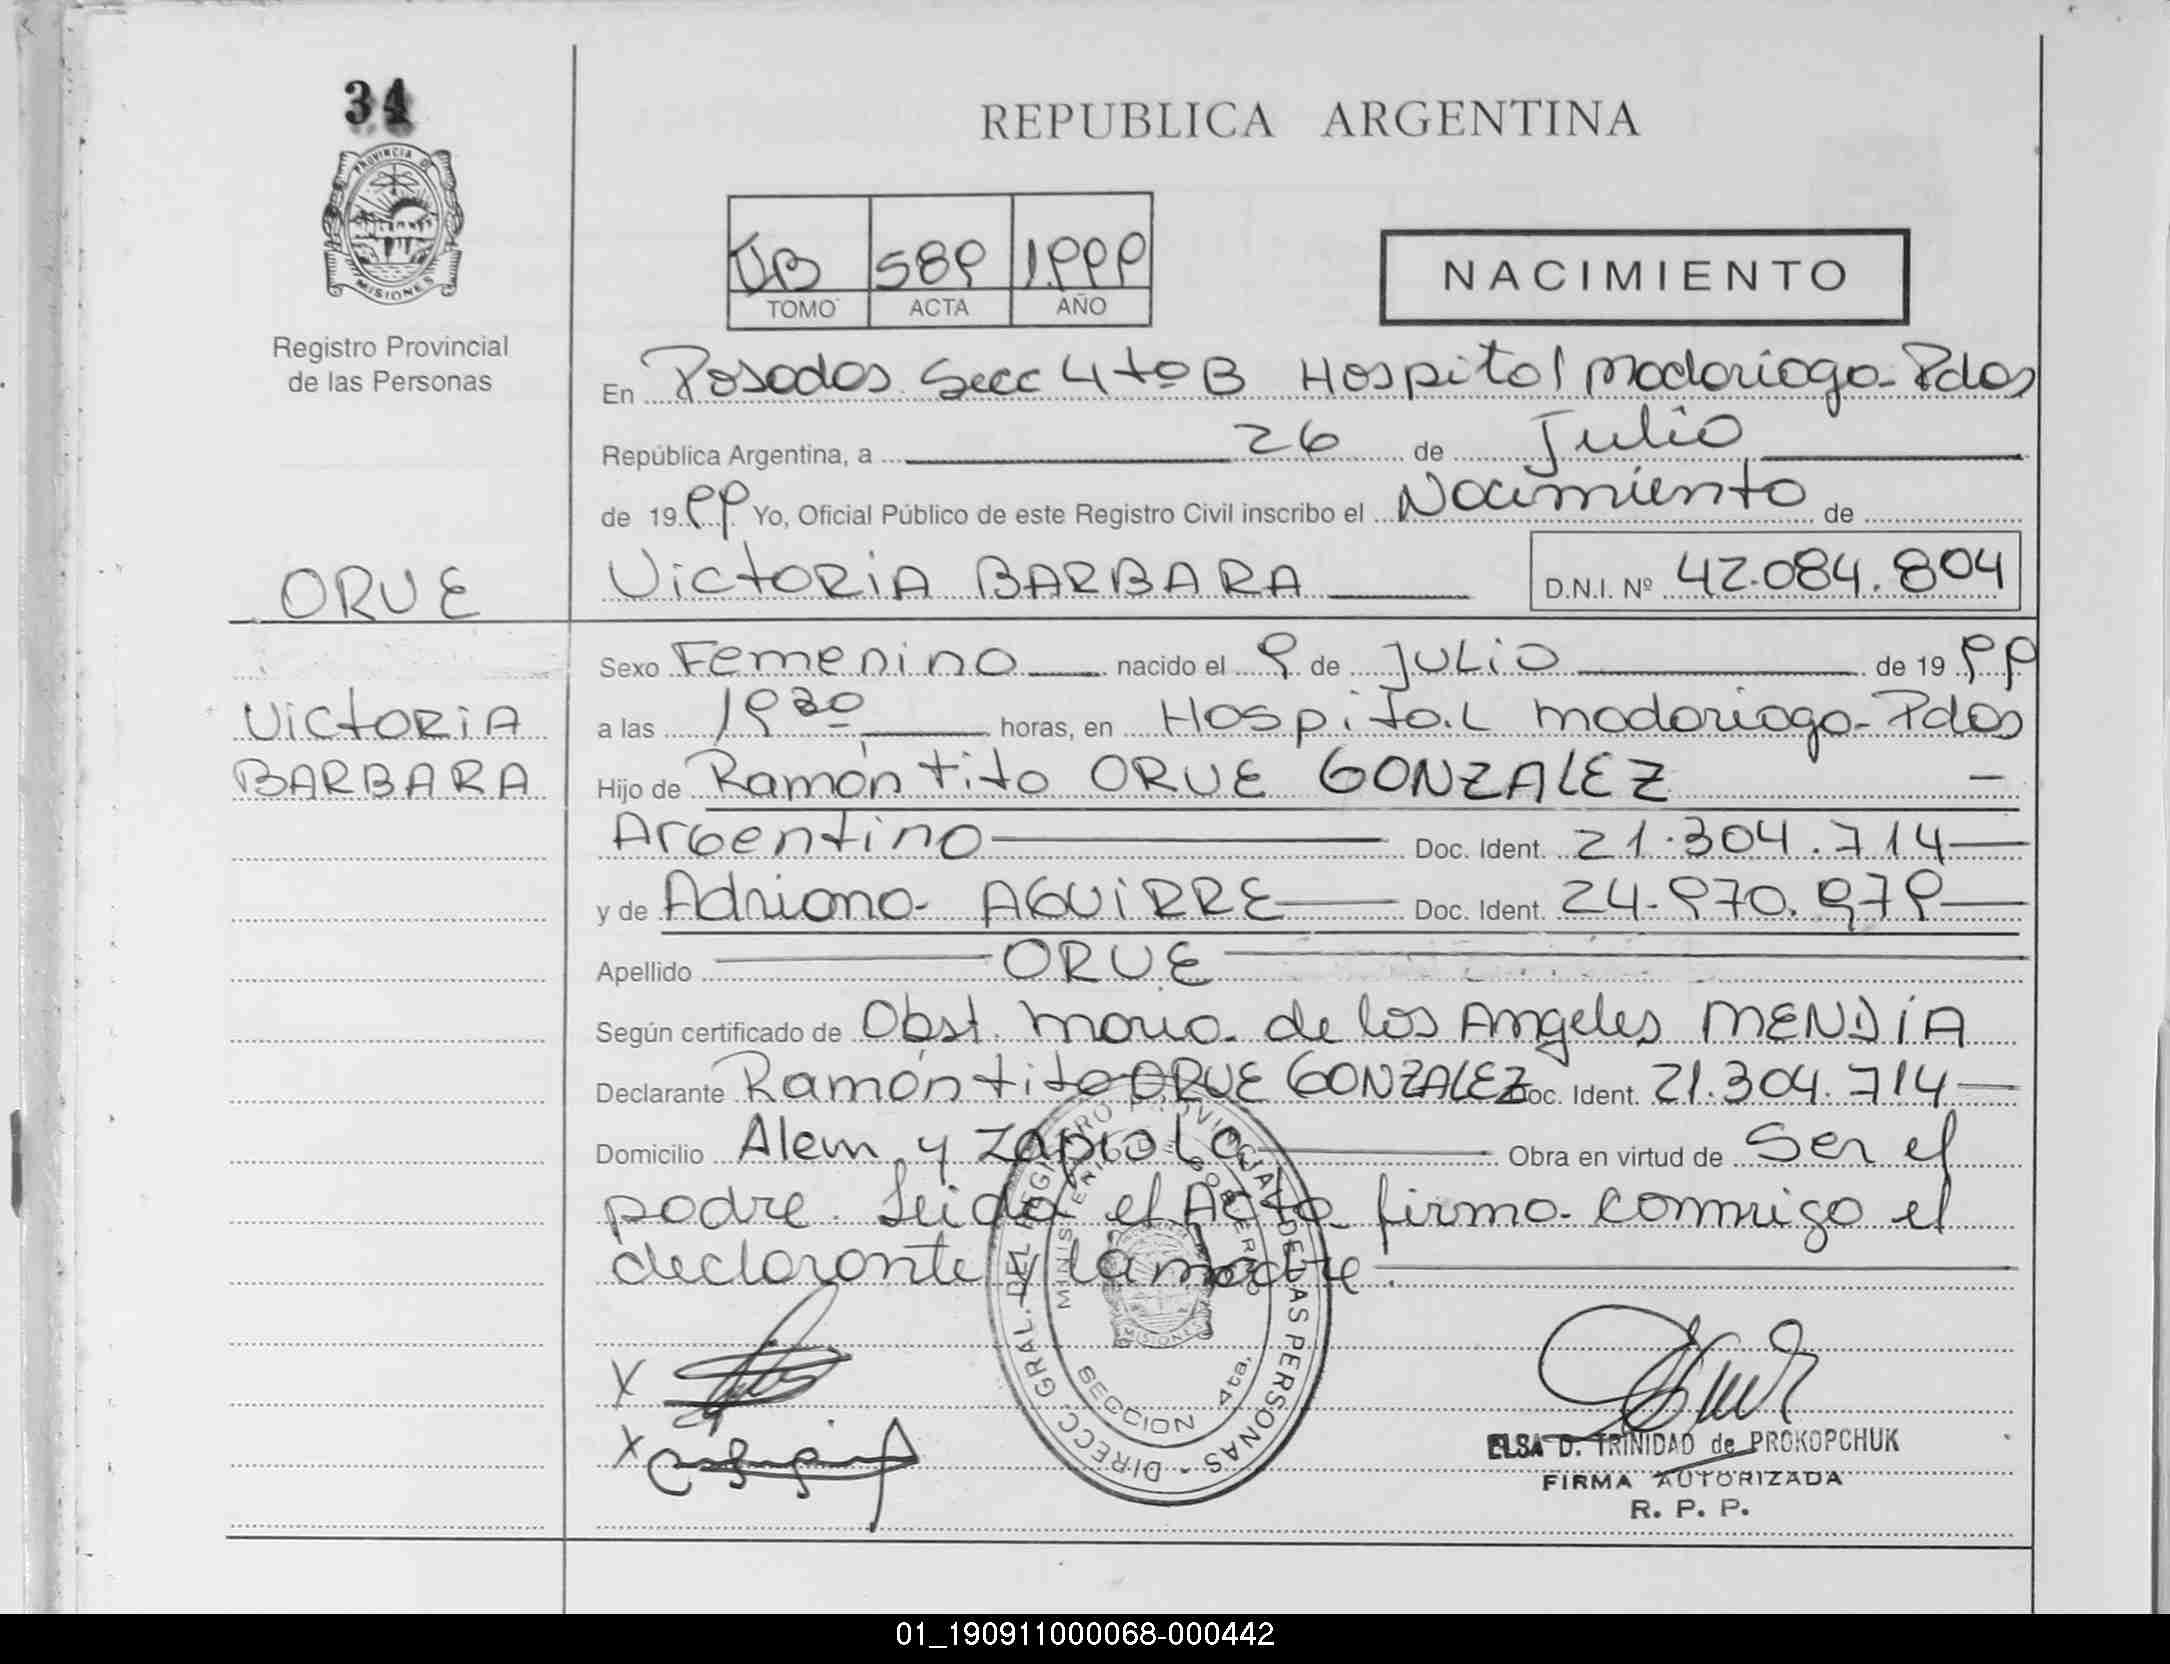 34
REPUBLICA ARGENTINA
PROVINCIA D
MISIONES
Registro Provincial
de las Personas
589 1.999
TOMO ACTA AÑO
NACIMIENTO
En Posadas Secc 4to B Hospital Madariaga-Pdas
República Argentina, a 26 de Julio
de 1999 Yo, Oficial Público de este Registro Civil inscribo el Nacimiento de
ORUE
VictoRiA BARBARA D.N.I. Nº 42.084.804
Sexo Femenino nacido el 9 de JULio de 1999
VictoRiA
BARBARA
a las 1930 horas, en Hospital Madariaga-Pdas
Hijo de Ramón tito ORUE GONZALEZ
Argentino Doc. Ident. 21.304.714
y de Adriana AGUiRRE Doc. Ident. 24.970.979
Apellido ORUE
Según certificado de Obst. Maria de los Angeles MENDiA
Declarante Ramón tito ORUE GONZALEZ Doc. Ident. 21.304.714
Domicilio Alem y Zapiola Obra en virtud de Ser el
padre. Leida el Acta firma conmigo el
declarante y la madre.
DIRECC. GRAL. DEL REGISTRO PROVINCIAL DE LAS PERSONAS
MINISTERIO DE GOBIERNO
MISIONES
SECCION 4ta.
X
X
ELSA D. TRINIDAD de PROKOPCHUK
FIRMA AUTORIZADA
R. P. P.
01_190911000068-000442